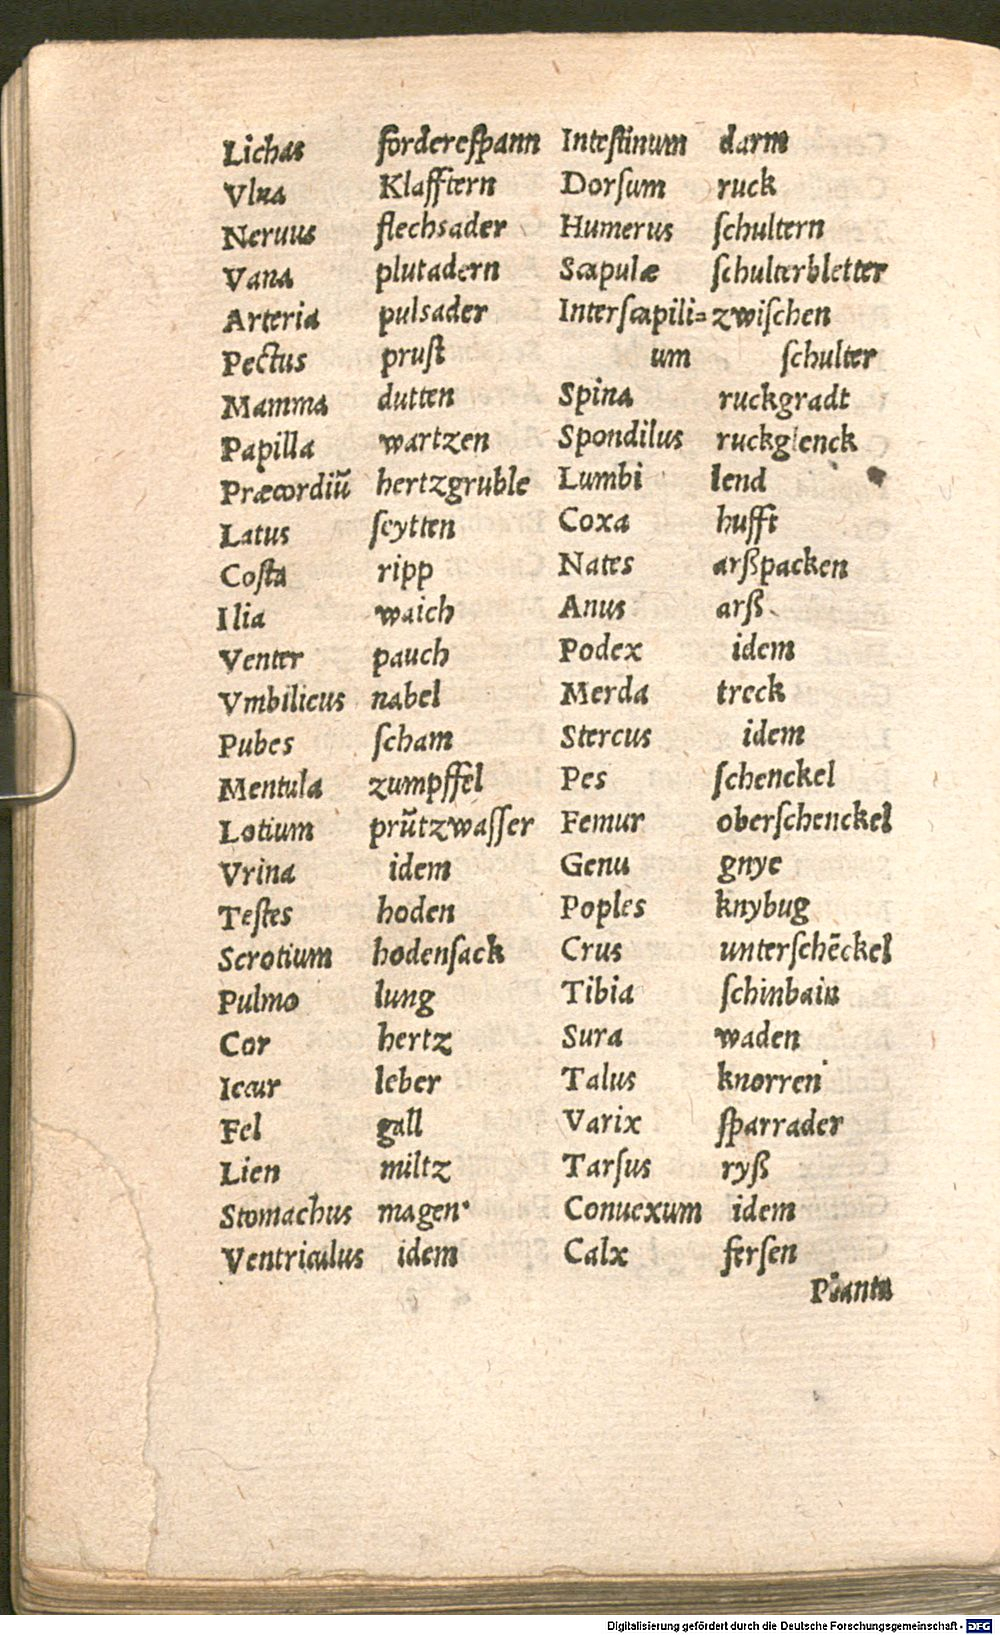 Lichas fordereſpann
Vlna Klafftern
Neruus flechsader
Vana plutadern
Arteria pulsader
Pectus pruſt
Mamma dutten
Papilla wartzen
Præcordiū hertzgruble
Latus ſeytten
Coſta ripp
Ilia waich
Venter pauch
Vmbilicus nabel
Pubes ſcham
Mentula zumpffel
Lotium prūtzwaſſer
Vrina idem
Teſtes hoden
Scrotium hodenſack
Pulmo lung
Cor hertz
Iecur leber
Fel gall
Lien miltz
Stomachus magen
Ventriculus idem
Inteſtinum darm
Dorſum ruck
Humerus ſchultern
Scapulæ ſchulterbletter
Interſcapili= zwiſchen
um ſchulter
Spina ruckgradt
Spondilus ruckglenck
Lumbi lend
Coxa hufft
Nates arßpacken
Anus arß
Podex idem
Merda treck
Stercus idem
Pes ſchenckel
Femur oberſchenckel
Genu gnye
Poples knybug
Crus unterſchēckel
Tibia ſchinbain
Sura waden
Talus knorren
Varix ſparrader
Tarſus ryß
Conuexum idem
Calx ferſen
Planta
Digitalisierung gefördert durch die Deutsche Forschungsgemeinschaft - DFG